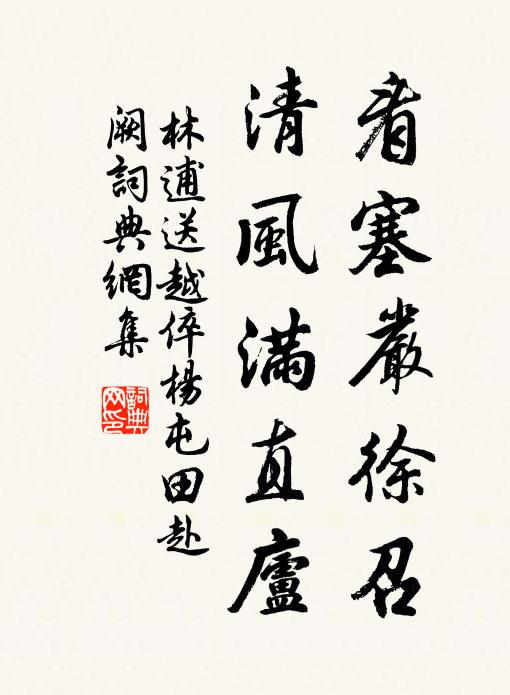 看塞嚴徐召
清風滿直廬
林逋送越倅楊屯田赴
闕詞典網集
詞典网印